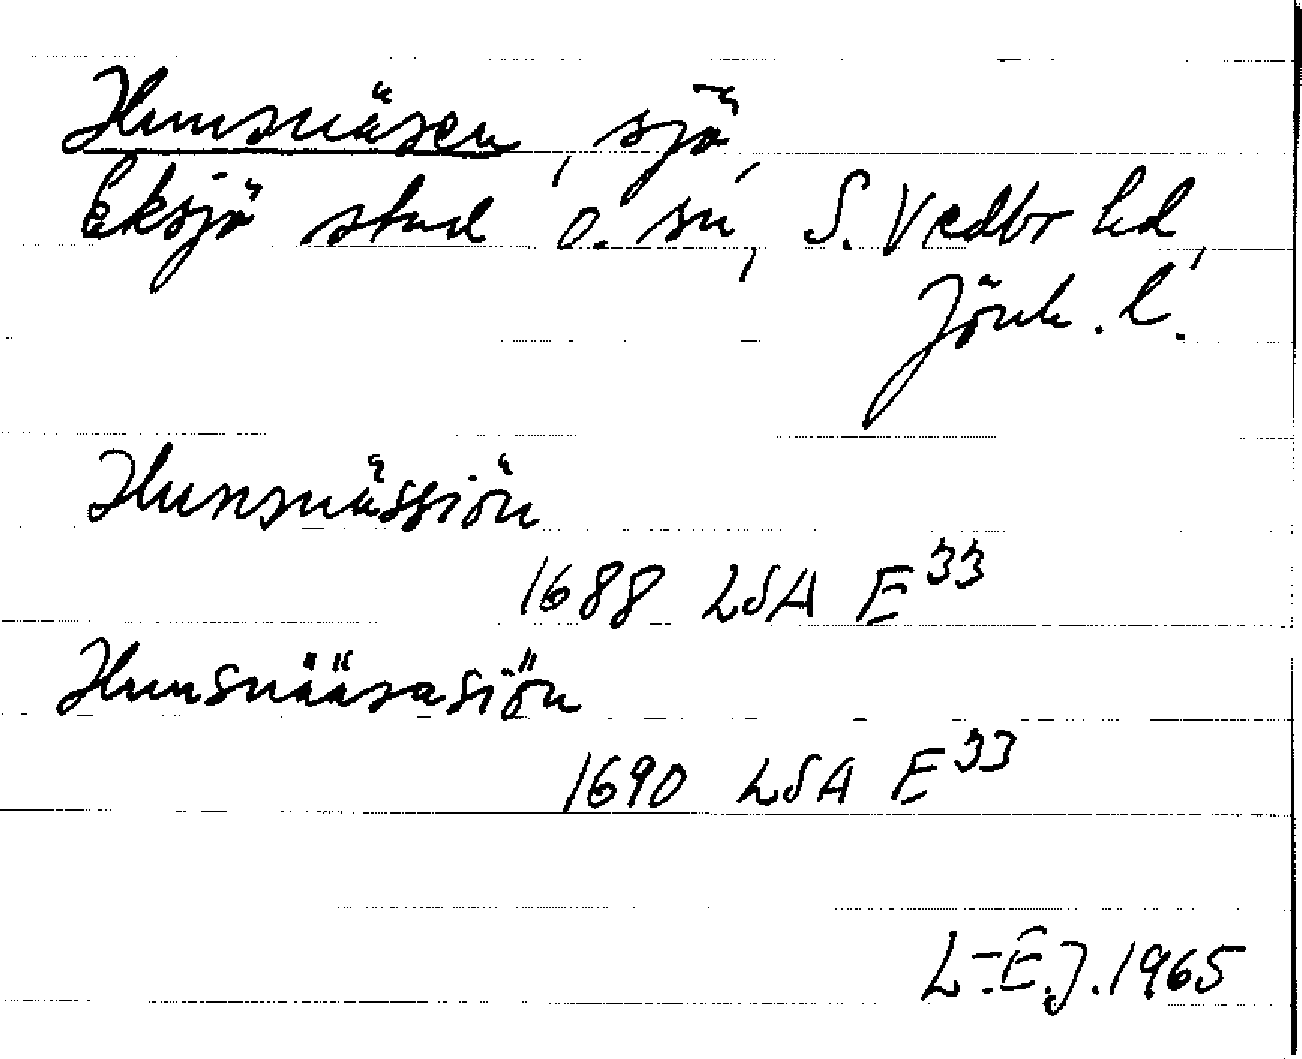 Hunsnäsen, sjö,
Eksjö stad o. sn, S. Vedbr hd,
Jönk. l.
Hunsnässiön
1688 LSA E33
Hunsnääsasiön
1690 LSA E33
L-E.J. 1965